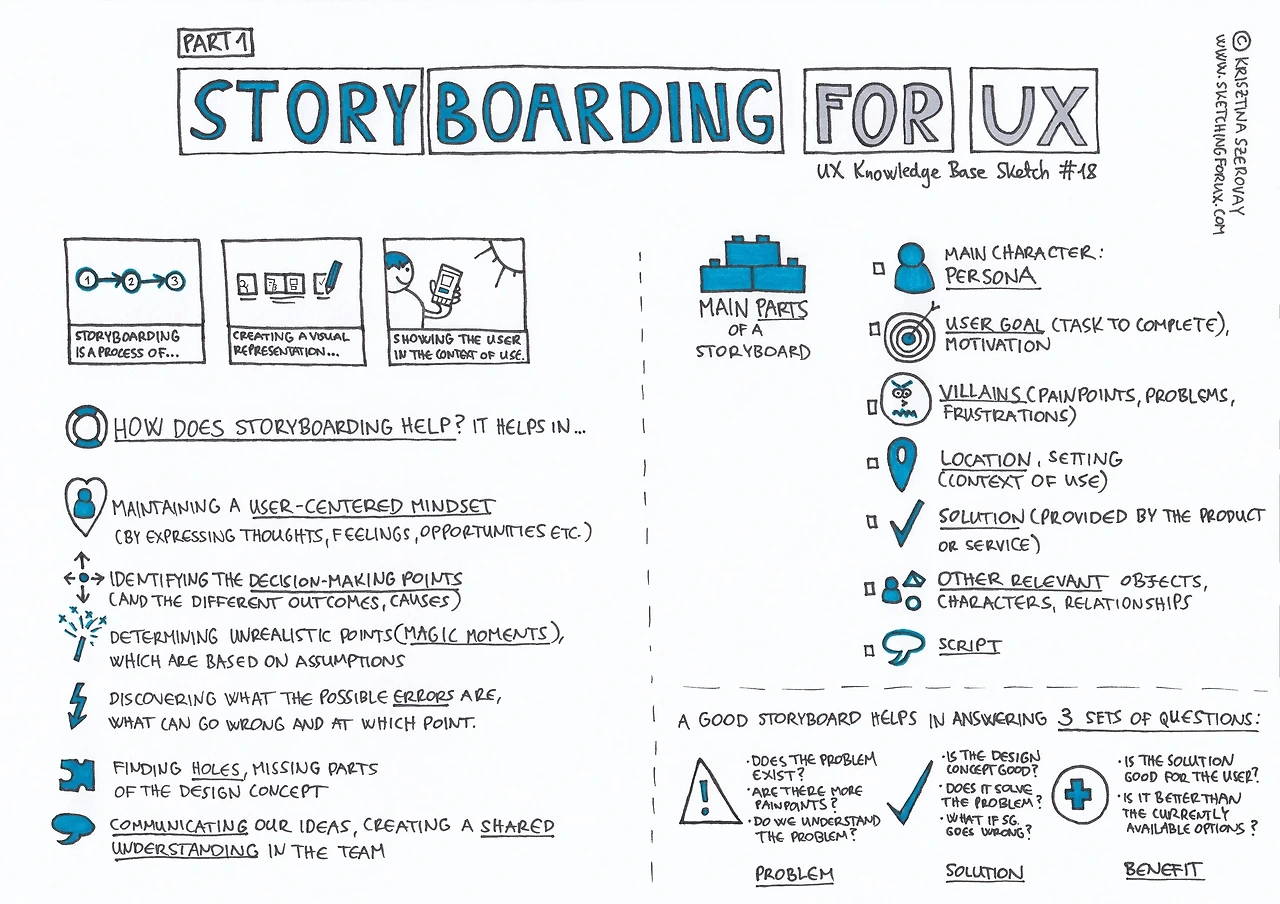 PART 1
STORYBOARDING FOR UX
UX Knowledge Base Sketch #18
© KRISZTINA SZEROVAY
WWW.SKETCHINGFORUX.COM
1 2 3
STORYBOARDING
IS A PROCESS OF...
CREATING A VISUAL
REPRESENTATION...
SHOWING THE USER
IN THE CONTEXT OF USE.
HOW DOES STORYBOARDING HELP? IT HELPS IN...
MAINTAINING A USER-CENTERED MINDSET
(BY EXPRESSING THOUGHTS, FEELINGS, OPPORTUNITIES ETC.)
IDENTIFYING THE DECISION-MAKING POINTS
(AND THE DIFFERENT OUTCOMES, CAUSES)
DETERMINING UNREALISTIC POINTS (MAGIC MOMENTS),
WHICH ARE BASED ON ASSUMPTIONS
DISCOVERING WHAT THE POSSIBLE ERRORS ARE,
WHAT CAN GO WRONG AND AT WHICH POINT.
FINDING HOLES, MISSING PARTS
OF THE DESIGN CONCEPT
COMMUNICATING OUR IDEAS, CREATING A SHARED
UNDERSTANDING IN THE TEAM
MAIN PARTS
OF A
STORYBOARD
MAIN CHARACTER:
PERSONA
USER GOAL (TASK TO COMPLETE),
MOTIVATION
VILLAINS (PAINPOINTS, PROBLEMS,
FRUSTRATIONS)
LOCATION, SETTING
(CONTEXT OF USE)
SOLUTION (PROVIDED BY THE PRODUCT
OR SERVICE)
OTHER RELEVANT OBJECTS,
CHARACTERS, RELATIONSHIPS
SCRIPT
A GOOD STORYBOARD HELPS IN ANSWERING 3 SETS OF QUESTIONS:
• DOES THE PROBLEM
EXIST?
• ARE THERE MORE
PAINPOINTS?
• DO WE UNDERSTAND
THE PROBLEM?
PROBLEM
• IS THE DESIGN
CONCEPT GOOD?
• DOES IT SOLVE
THE PROBLEM?
• WHAT IF SG.
GOES WRONG?
SOLUTION
• IS THE SOLUTION
GOOD FOR THE USER?
• IS IT BETTER THAN
THE CURRENTLY
AVAILABLE OPTIONS?
BENEFIT